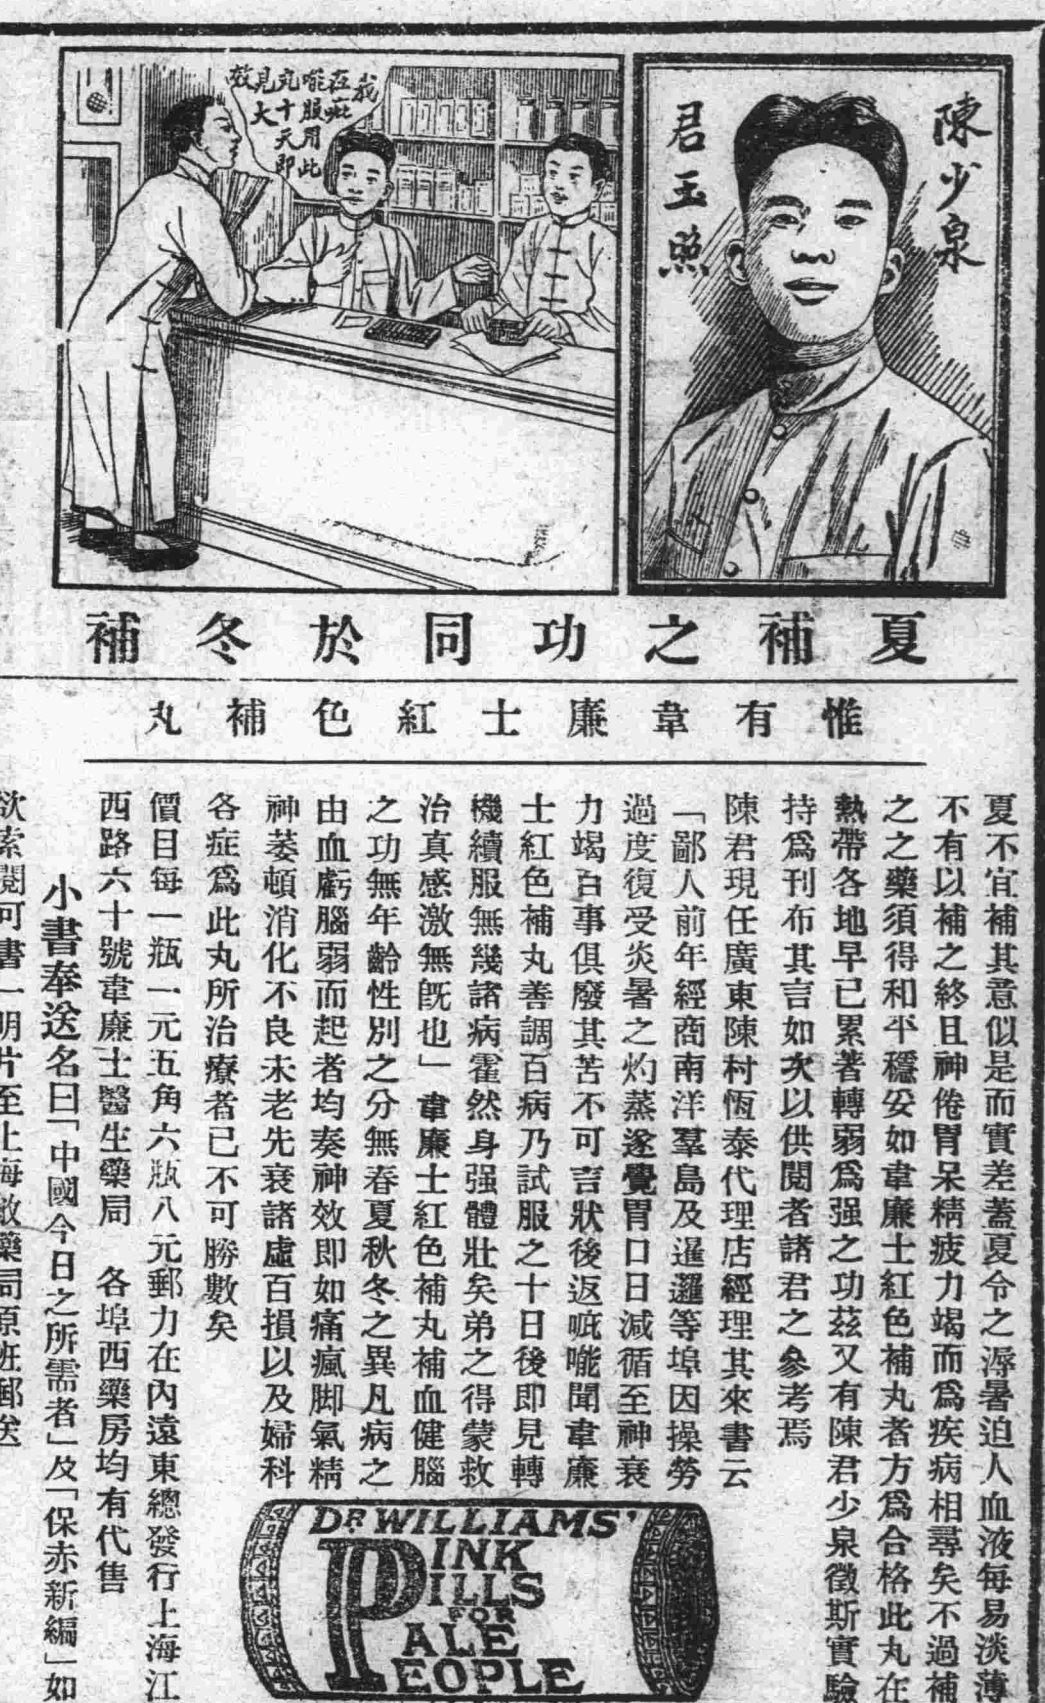 陳少泉
君玉照
我在砒
嚨服用此
丸十天即
見大
效
夏補之功同於冬補
惟有韋廉士紅色補丸
夏不宜補其意似是而實差蓋夏令之溽暑迫人血液每易淡薄
不有以補之終且神倦胃呆精疲力竭而為疾病相尋矣不過補
之之藥須得和平穩妥如韋廉士紅色補丸者方為合格此丸在
熱帶各地早已累著轉弱為强之功茲又有陳君少泉徵斯實驗
持為刊布其言如次以供閱者諸君之參考焉
陳君現任廣東陳村恆泰代理店經理其來書云
「鄙人前年經商南洋羣島及暹邏等埠因操勞
過度復受炎暑之灼蒸遂覺胃口日減循至神衰
力竭百事俱廢其苦不可言狀後返哌嚨聞韋廉
士紅色補丸善調百病乃試服之十日後即見轉
機續服無幾諸病霍然身强體壯矣弟之得蒙救
治真感激無旣也」韋廉士紅色補丸補血健腦
之功無年齡性別之分無春夏秋冬之異凡病之
由血虧腦弱而起者均奏神效即如痛瘋脚氣精
神萎頓消化不良未老先衰諸虛百損以及婦科
各症為此丸所治療者已不可勝數矣
價目每一瓶一元五角六瓶八元郵力在內遠東總發行上海江
西路六十號韋廉士醫生藥局 各埠西藥房均有代售
小書奉送名曰「中國今日之所需者」及「保赤新編」如
欲索閱可書一明片至上海敝藥局原班郵送
DR WILLIAMS'
PINK
PILLS
FOR
PALE
PEOPLE